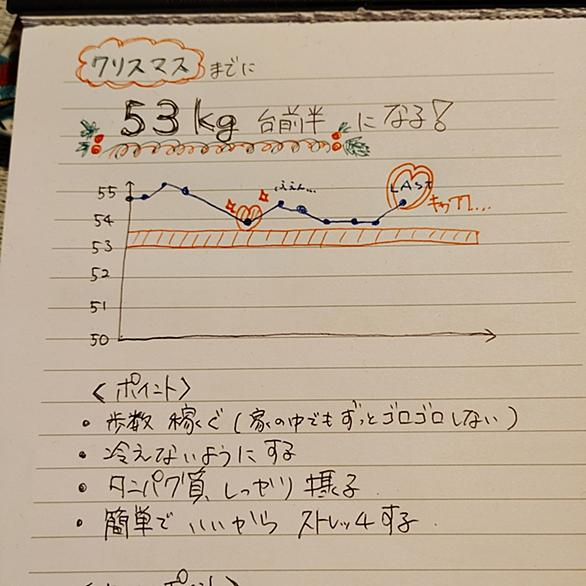 クリスマス までに
53kg 台前半 になる!
ええん...
LAST
キャー...
55
54
53
52
51
50
<ポイント>
・歩数 稼ぐ(家の中でもずっとゴロゴロしない)
・冷えないようにする
・タンパク質、しっかり
・簡単でいいから ストレッチする